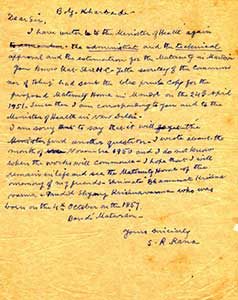 B. G. Kharbande
Dear Sir,
I have writen to the Minister of Health again
the administrat and the technical
approval and the estimation for the Maternity in Mandvi
You know that the secretary of the Commissio
ner of has send the blue prints copy for the
proposed Maternity Home in Mandvi on the 24th April
1951. Since then I am corresponding you and to the
Ministry of Health in New Delhi.
I am sorry to say that it will the
Minister and another question. I wrote about the
month of November 1950 and I do not know
when the works will commence - I hope that I will
remain in life and see the Maternity Home of the
memory of my friends Shrimati Bhanumati Krishna
varma & Pandit Shyamji Krishnavarma who was
born on the 4th October on the 1857.
Bande Mataram.
Yours sincerely
S. R. Rana